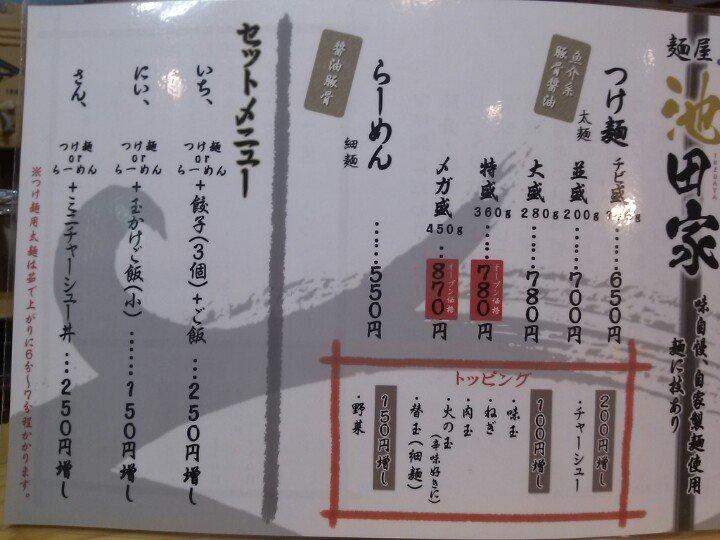 麺屋
池田家
IKEDAYA
味自慢、自家製麺使用
麺に技あり
魚介系
豚骨醤油
つけ麺
太麺
チビ盛
……650円
並盛
200g
……700円
大盛
280g
……780円
特盛
360g
オープン価格
……780円
メガ盛
450g
オープン価格
……870円
醤油豚骨
らーめん
細麺
……550円
トッピング
200円増し
・チャーシュー
100円増し
・味玉
・ねぎ
・肉玉
・火の玉
(辛味好きに)
・替玉(細麺)
150円増し
・野菜
セットメニュー
いち、
つけ麺
or
らーめん
+餃子(3個)+ご飯 …250円増し
にい、
つけ麺
or
らーめん
+玉かけご飯(小)……150円増し
さん、
つけ麺
or
らーめん
+ミニチャーシュー丼 …250円増し
※つけ麺用太麺は茹で上がりに6分〜7分程かかります。